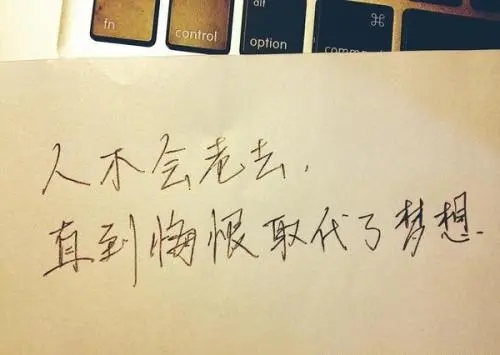 fn
control
alt
option
⌘
人不会老去，
直到悔恨取代了梦想.